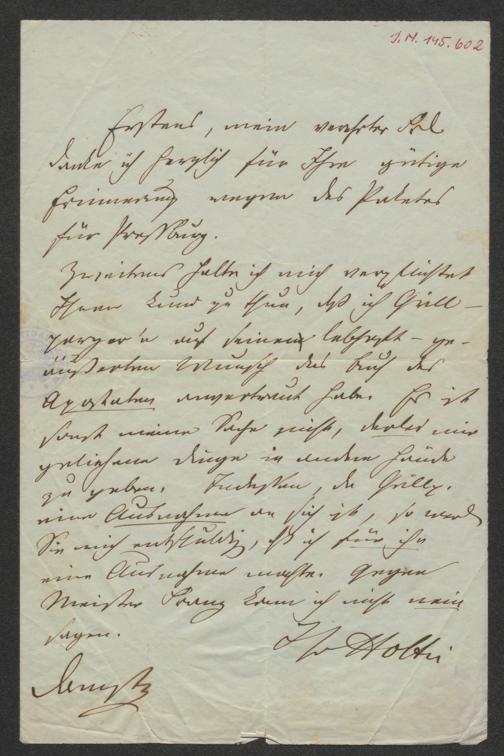 J.N. 145.602
Erstens, mein verehrter
danke ich herzlich für Ihre gütige
Erinnerung wegen des Paketes
für Pressburg.
Zweitens halte ich mich verpflichtet
Ihnen kund zu thun, daß ich Grill-
parzer'n auf seinen lebhaft-ge-
äußerten Wunsch das Buch des
Apostaten anvertraut habe. Es ist
sonst meine Sache nicht, derlei mir
geliehene Dinge in andere Hände
zu geben. Indessen, da Grillp.
eine Ausnahme an sich ist, so werden
Sie mich entschuldig, daß ich für ihn
eine Ausnahme machte. Gegen
Meister Franz kann ich nicht nein
sagen.
Ihr Holtei